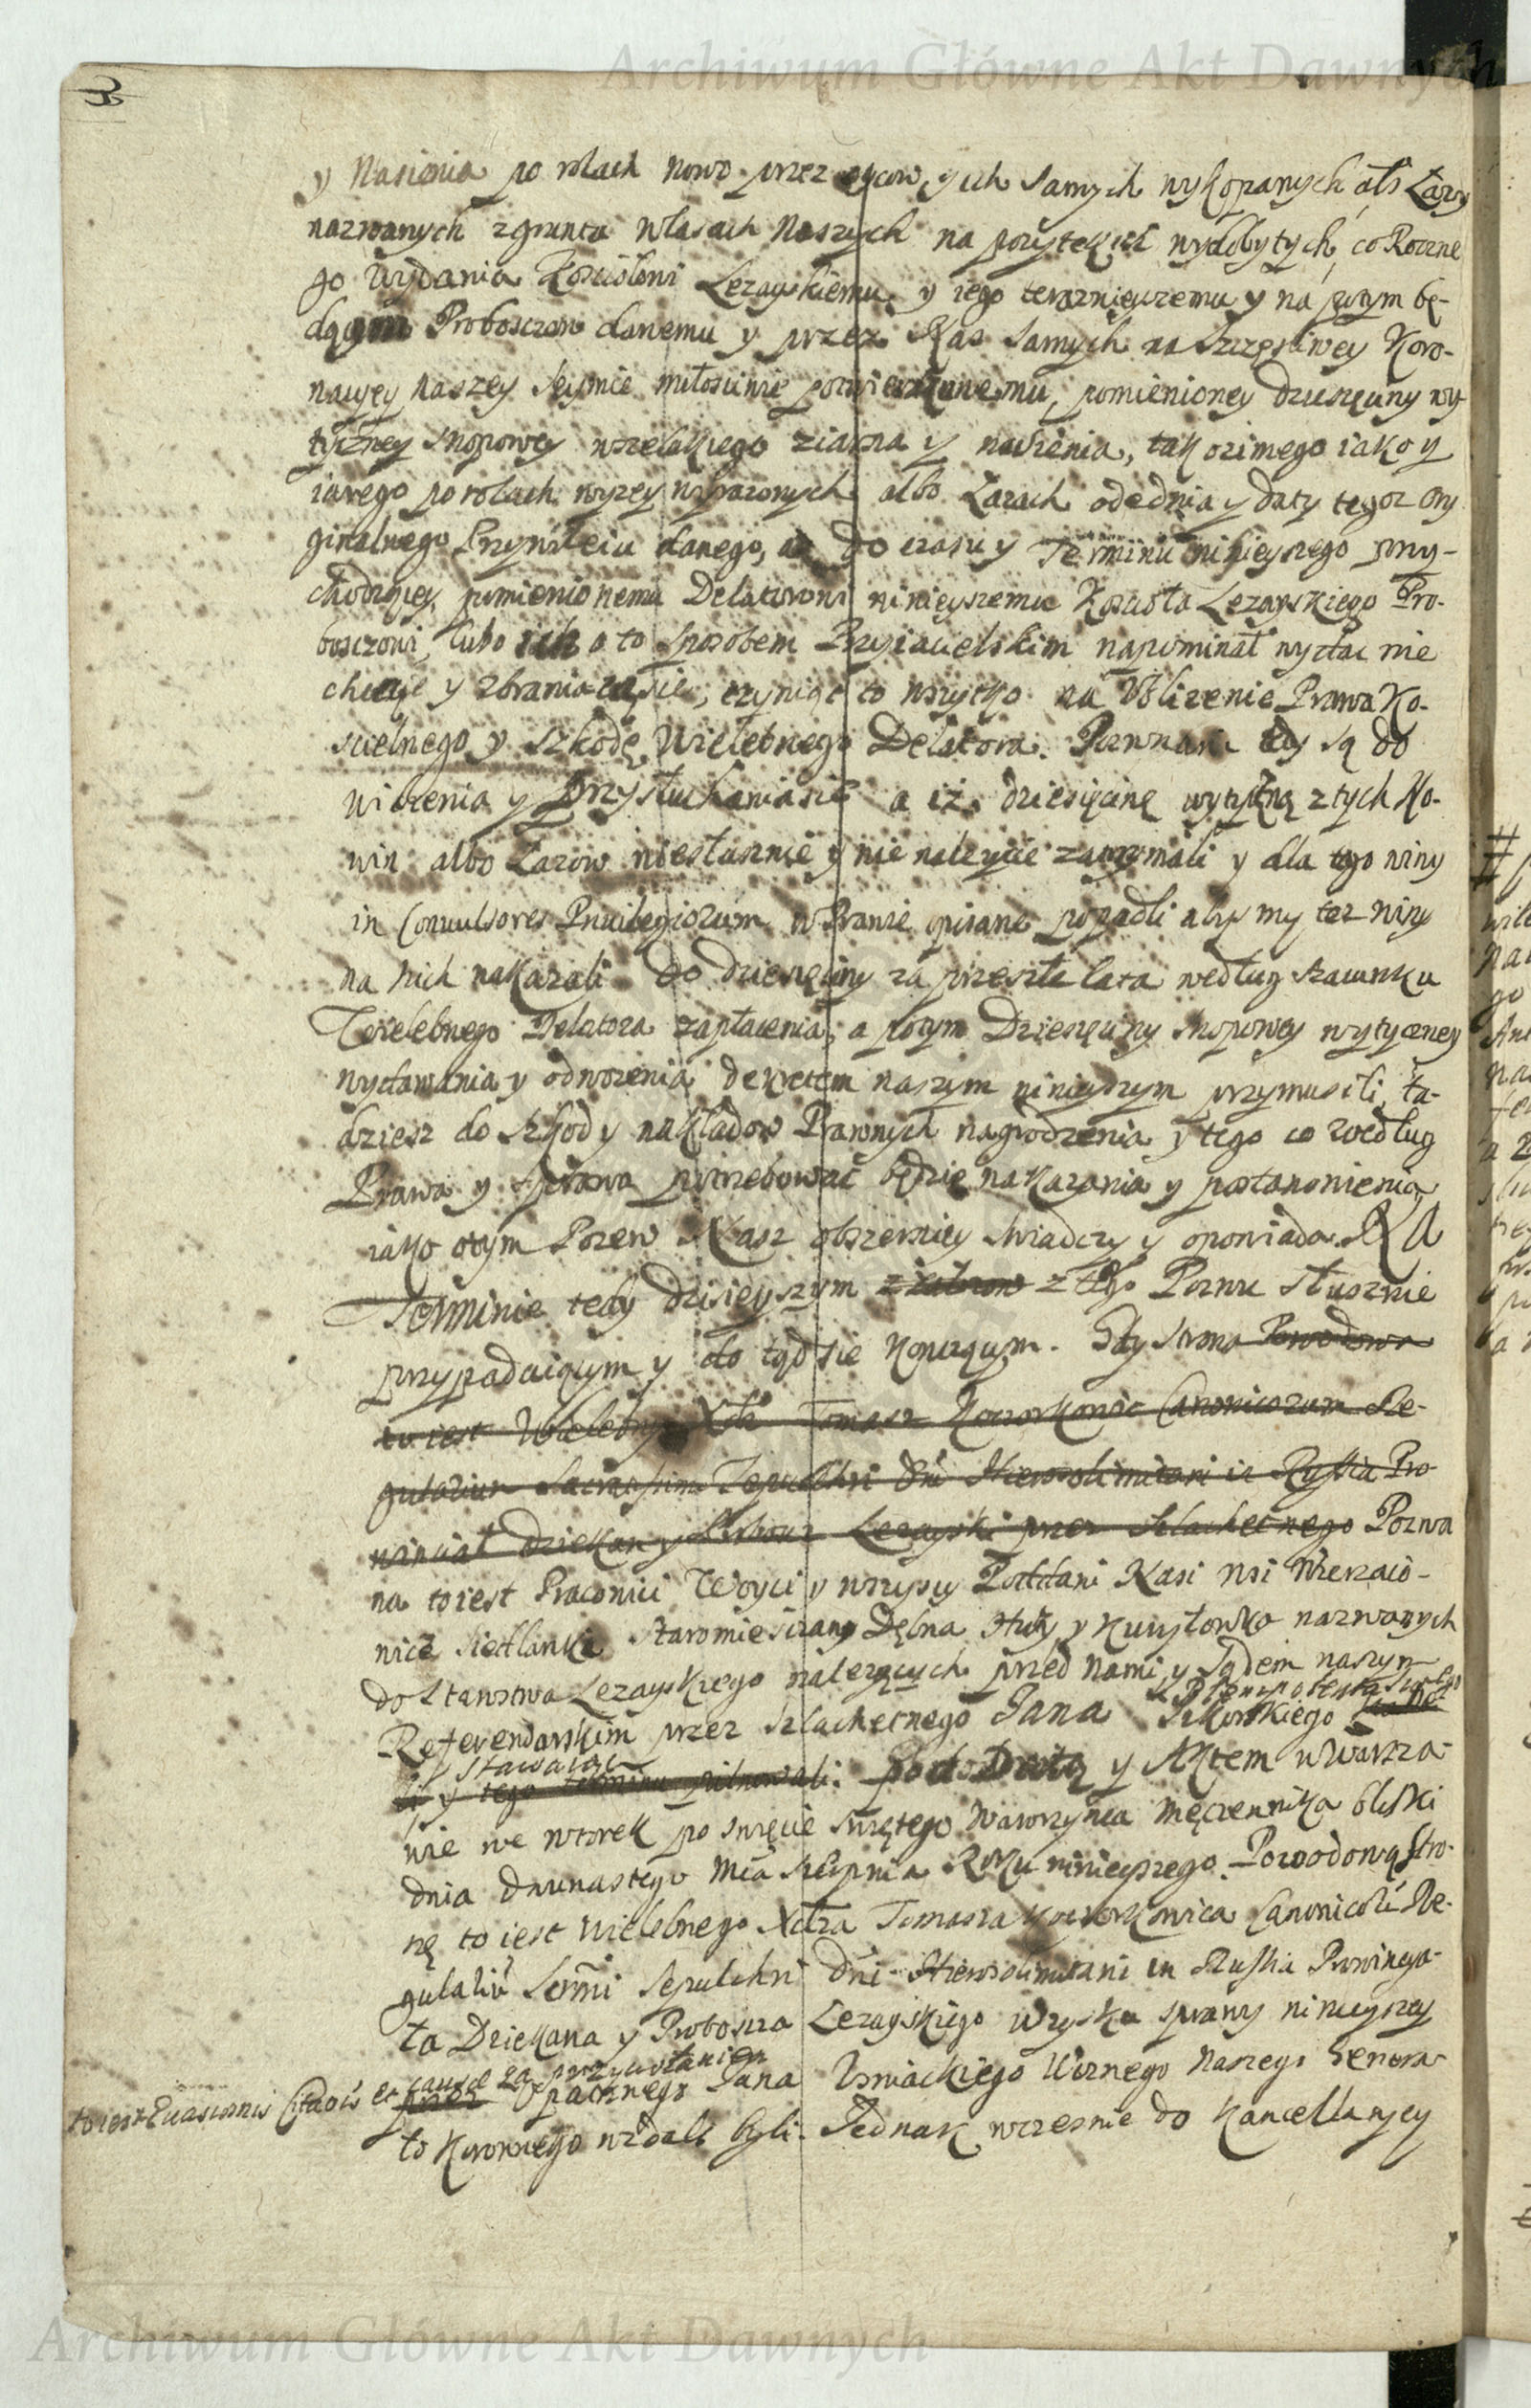 Archiwum Główne Akt Dawnych
3
y Nasienia po rolach nowo przez oycow, y ich samych wykopanych als Łazy
nazwanych z gruntu w lasach Naszych na pożytek ich wydobytych, co Roczne
go wydania Kosciołowi Lezayskiemu y iego teraznieyszemu y na potym bę-
dącym Proboszczom danemu y przez Nas samych na szczęsliwey Koro-
nacyey naszey Seymie miłosciwie potwierdzonemu, pomienioney dziesięciny wy-
tyczney snopowey wszelakiego ziarna y nasienia, tak ozimego iako y
iarego po rolach wyzey wyrazonych albo Łazach ode dnia y daty tegoz ory
ginalnego Przywileiu danego, aż do czasu y Terminu ninieyszego przy-
chodzącey, pomienionemu Delatorowi ninieyszemu Koscioła Lezayskiego Pro-
boszczowi, lubo ich o to sposobem Przyiacielskim napominał wydac nie
chcecie y zbraniacie się, czyniąc to wszytko na Ubliżenie Prawa Ko-
scielnego y szkodę Wielebnego Delatora. Pozwani tedy są do
widzenia y przysłuchania się a iż dziesięcinę wytyczną z tych No-
win albo Łazow niesłusznie y nie nalezycie zatrzymali y dla tego winy
in Convulsores Privilegiorum w Prawie opisane popadli abysmy tez winy
na nich nakazali do dziesięciny za przeszłe lata według szacunku
Wielebnego Delatora zapłacenia, a potym Dziesięciny snopowey wytyczney
wydawania y odwozenia dekretem naszym ninieyszym przymusili, ta-
dziesz do szkod y nakładow Prawnych nagrodzenia y tego co według
Prawa y sprawa potrzebować będzie nakazania y postanowienia,
iako o tym Pozew Nasz obszerniey swiadczy y opowiada. Na
Terminie tedy dzisieyszym z tego Pozwu słusznie
przypadaiącym y do tąd sie toczącym. Gdy strona Powodowa
to iest Wielebny Xdz Tomasz Koczorkowic Canonicorum Re-
gularium Sacratissimi Sepulchri Dni Hierosolimitani in Russia Pro-
winciał Dziekan y Proboszcz Lezayski przez Szlachetnego Pozwa
na to iest Pracowici Woyci y wszyscy Poddani Nasi wsi Wierzawic
nice Siedlanka Staromiescie Dębna Huty y Kuryłowka nazwanych
do Starostwa Lezayskiego nalezących przed Nami y Sądem naszym
Referendarskim przez szlachetnego Jana Sikorskiego Plenipotenta swego
stawaiąc
y tego terminu pilnowali. pod Datą y Aktem w Warsza-
wie we wtorek po święcie świętego Wawrzynca Męczennika blisko
dnia dwunastego Mca Sierpnia Roku ninieyszego Powodową stro-
nę to iest Wielebnego Xdza Tomasza Koczorkowica Canonicorū Re-
gulariū Ssmi Sepulchri Dni Hierosolimitani in Russia Prowincya-
ła Dziekana y Proboszcza Lezayskiego w zysku sprawy ninieyszey
to iest Euasionis Citaōis et causae za przywołaniem
przez Opatrznego Jana Woznego Naszego Genera-
ła Koronnego wzdali byli. Jednak wczesnie do Kancellaryey
Archiwum Główne Akt Dawnych